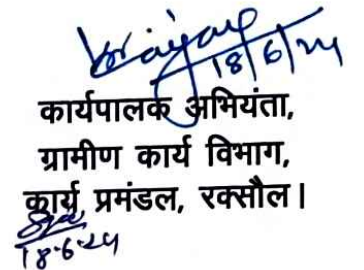 18/6/24
कार्यपालक अभियंता,
ग्रामीण कार्य विभाग,
कार्य प्रमंडल, रक्सौल।
18-6-24